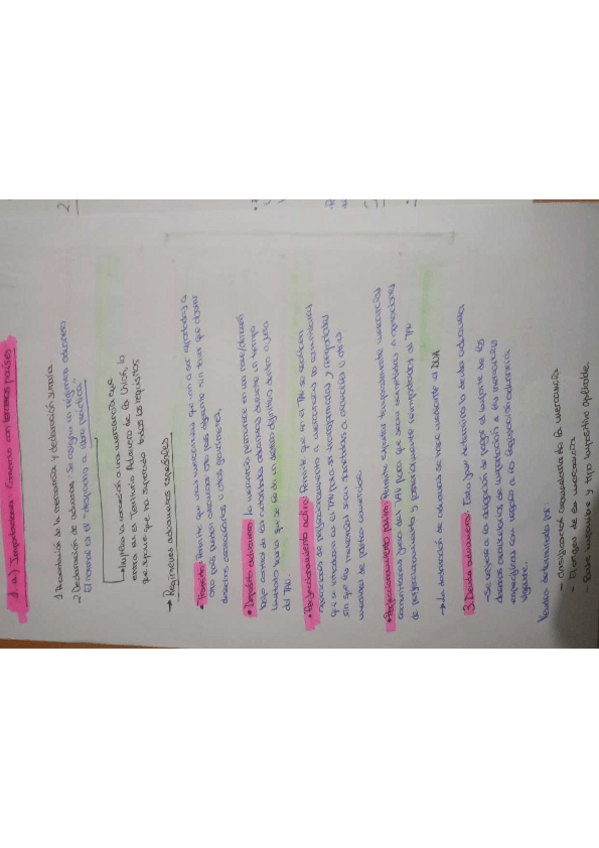 1.a) Importaciones: Comercio con terceros países
1. Presentación de la mercancía y declaración sumaria.
2. Declaración de aduanas. Se asigna un régimen aduanero
El normal es el "despacho a libre práctica"
↳ Implica la concesión a una mercancía que
entra en el Territorio Aduanero de la Unión, lo
que supone que ha superado todos los requisitos
→ Regímenes aduaneros especiales
• Tránsito: Permite que unas mercancías que van a ser exportadas a
otro país puedan circular sin tener que abonar
derechos arancelarios u otros gravámenes.
• Depósito aduanero: La mercancía permanece en un
bajo control de las autoridades aduaneras durante un tiempo
hasta que se le da un destino definitivo dentro o fuera
del TAU.
• Perfeccionamiento activo: Permite que en el TAU se realicen
operaciones de perfeccionamiento a mercancías no comunitarias
que se introducen en el TAU para ser transformadas y reexportadas
sin que las mercancías sean sometidas a aranceles u otras
medidas de política comercial.
• Perfeccionamiento pasivo: Permite exportar temporalmente mercancías
comunitarias fuera del TAU para que sean sometidas a operaciones
de perfeccionamiento y posteriormente reimportadas al TAU
→ La declaración de aduanas se hace mediante el DUA
3. Deuda aduanera: Debe determinar la deuda aduanera
- Se refiere a la obligación de pagar el importe de los
derechos arancelarios de importación a las mercancías
específicas con respecto a la legislación aduanera
vigente.
determinada por:
- clasificación arancelaria de la mercancía
- El origen de la mercancía
- Base imponible y tipo impositivo aplicable.
2